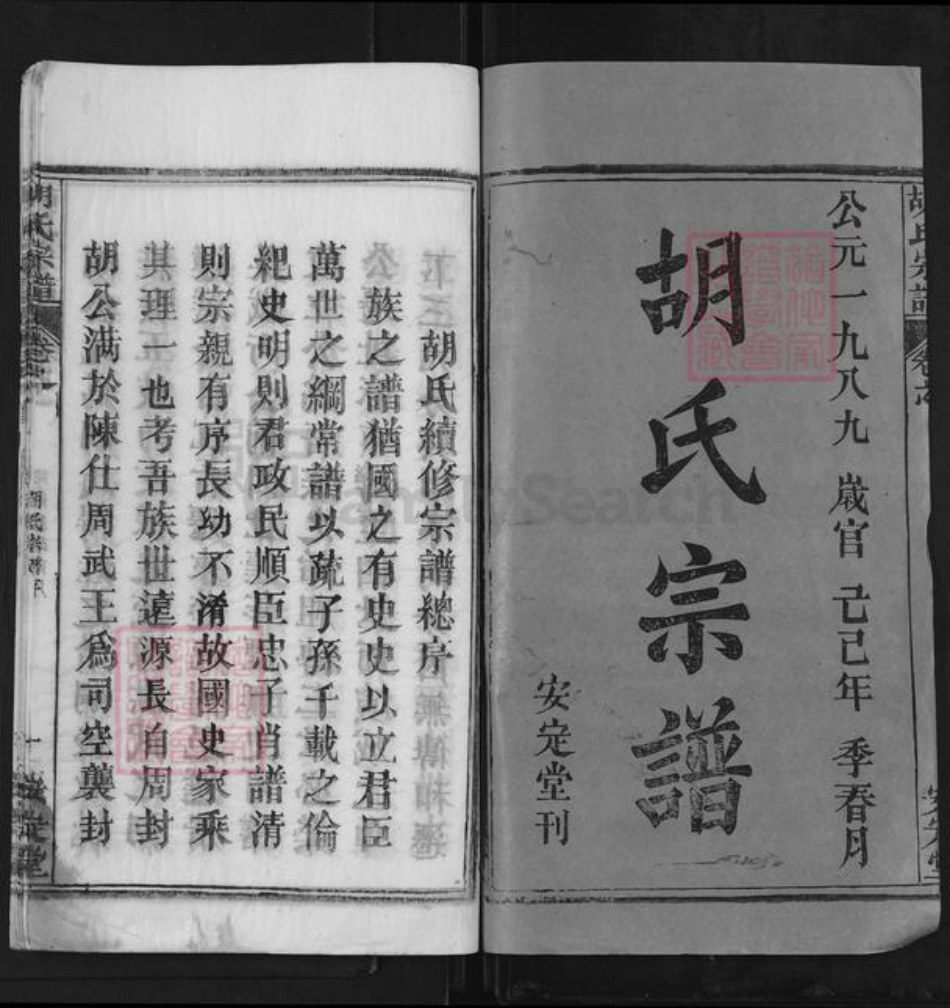 公元一九八九 歲官 己巳年 季春月
胡氏宗譜
安定堂刊
胡氏續修宗譜總序
族之譜猶國之有史史以立君臣
萬世之綱常譜以疏子孫千載之倫
紀史明則君政民順臣忠子肖譜清
則宗親有序長幼不淆故國史家乘
其理一也考吾族世遠源長自周封
胡公满於陳仕周武王爲司空襲封
胡氏宗譜
卷之一
一
安定堂